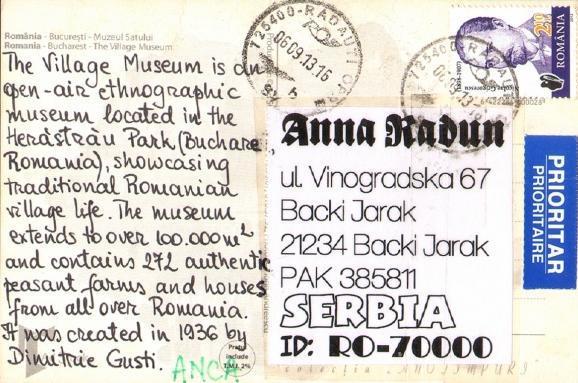 România - București - Muzeul Satului
Romania - Bucharest - The Village Museum
The Village Museum is an
open-air ethnographic
museum located in the
Herăstrău Park, (Bucharest,
Romania), showcasing
traditional Romanian
village life. The museum
extends to over 100.000m²
and contains 272 authentic
peasant farms and houses
from all over Romania.
It was created in 1936 by
Dimitrie Gusti.
ANCA
Prețul
include
T.M.T. 2%
125400-RADAUTI
06.09.13-16
125400-RADAUTI
ROMÂNIA
Anna Radun
ul. Vinogradska 67
Backi Jarak
21234 Backi Jarak
PAK 385811
SERBIA
ID: RO-70000
PRIORITAR
PRIORITAIRE
colecția ANOTIMPURI